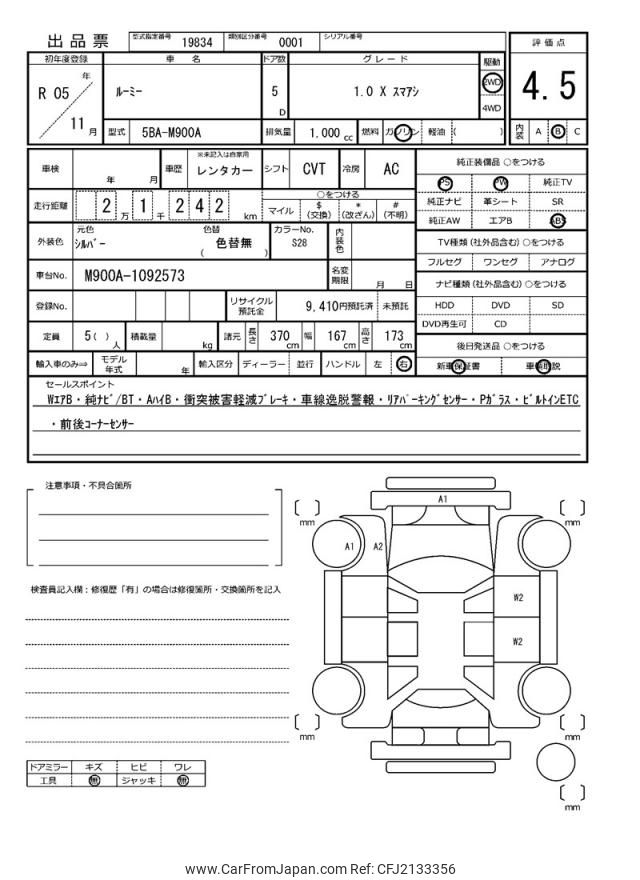 出品票 型式指定番号 19834 類別区分番号 0001 シリアル番号
初年度登録 車 名 ドア数 グレード 駆動 評価点
R 05 年 11 月 ルーミー 5 D 1.0 X スマアシ 2WD 4WD 4.5
型式 5BA-M900A 排気量 1.000 cc 燃料 ガソリン 軽油 ( ) 内装 A B C
車検 年 月 車歴 ※未記入は自家用 レンタカー シフト CVT 冷房 AC
走行距離 2 万 1 千 2 4 2 km ○をつける
マイル $ (交換) * (改ざん) # (不明)
外装色 元色 シルバー 色替 ( 色替無 ) カラーNo. S28 内装色
車台No. M900A-1092573 名変期限 月 日
登録No. リサイクル預託金 9,410円預託済 未預託
定員 5( ) 人 積載量 kg 諸元 長さ 370 cm 幅 167 cm 高さ 173 cm
輸入車のみ⇒ モデル年式 年 輸入区分 ディーラー 並行 ハンドル 左 右
純正装備品 ○をつける
PS PW 純正TV
純正ナビ 革シート SR
純正AW エアB ABS
TV種類(社外品含む)○をつける
フルセグ ワンセグ アナログ
ナビ種類(社外品含む)○をつける
HDD DVD SD
DVD再生可 CD
後日発送品 ○をつける
新車保証書 車輌取説
セールスポイント
WエアB・純ナビ/BT・AハイB・衝突被害軽減ブレーキ・車線逸脱警報・リアパーキングセンサー・Pガラス・ビルトインETC
・前後コーナーセンサー
注意事項・不具合箇所
検査員記入欄：修復歴「有」の場合は修復箇所・交換箇所を記入
ドアミラー キズ ヒビ ワレ
工具 無 ジャッキ 無
A1
mm mm
A1 A2
W2
W2
mm mm
mm
www.CarFromJapan.com Ref: CFJ2133356